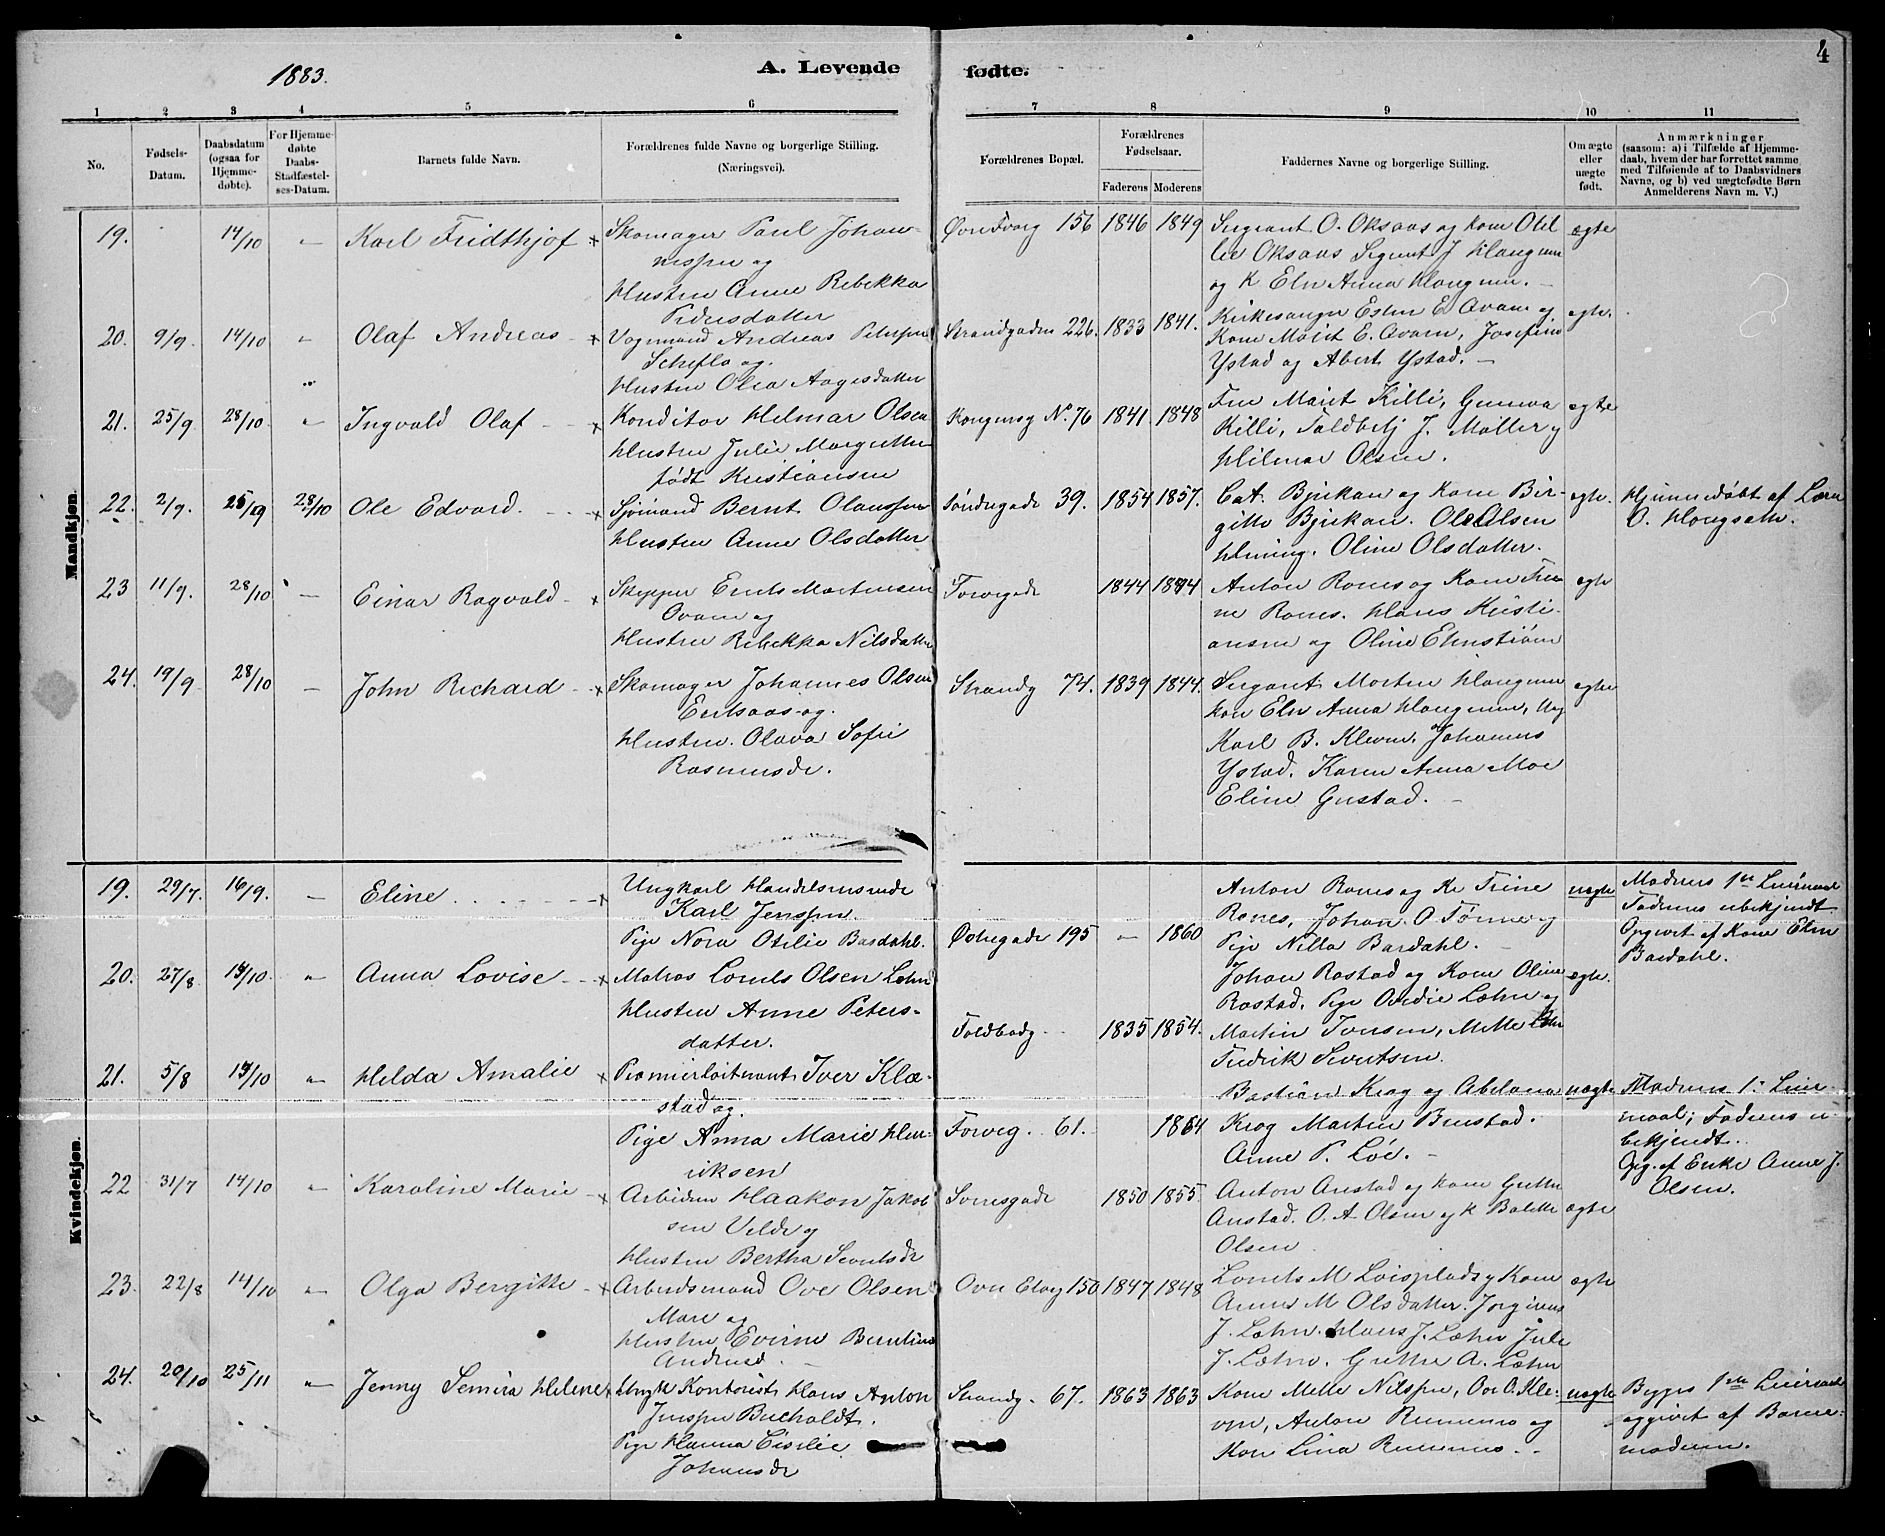 4
1883.
A. Levende fødte.
1 2 3 4 5 6 7 8 9 10 11
No.
Fødsels-Datum.
Daabsdatum (ogsaa for Hjemmedøbte).
For Hjemmedøbte Daabs-Stadfæstelses-Datum.
Barnets fulde Navn.
Forældrenes fulde Navne og borgerlige Stilling. (Næringsvei).
Forældrenes Bopæl.
Forældrenes Fødselsaar.
Faderens Moderens
Faddernes Navne og borgerlige Stilling.
Om ægte eller uægte født.
Anmærkninger
(saasom: a) i Tilfælde af Hjemme-
daab, hvem der har forrettet samme
med Tilføiende af to Daabsvidners
Navne, og b) ved uægtefødte Børn
Anmelderens Navn m. V.)
Mandkjøn.
19. 14/10 Karl Fridthjof
Skomager Paul Johan-
nessen og
Hustru Anne Rebekka
Pedersdatter
156 1846 1849
Sergeant O. Oksaas og Kone Otil-
lie Oksaas
og K Elen Anna Haugum.
ægte
20. 9/9. 14/10 " Olaf Andreas
Vognmand Andreas Petersen
Scheflo og
Hustru Olea Aagesdatter
Strandgaden 226. 1833 1841.
Kirkesanger Esten E. Avam og
Kone Marit E. Avam, Josefine
Ystad og Abert Ystad.
ægte.
21. 25/9 28/10 " Ingvald Olaf
Konditor Hilmar Olsen
Hustru Julie Margrethe
født Kristiansen
Kongensg No. 76 1841. 1848
Fru Marit Killi, Gunva
Killi, Toldbetj J. Møller og
Hilmar Olsen.
ægte
22. 2/9. 25/9 28/10 Ole Edvard.
Sjømand Bernt Olaussen
Hustru Anne Olsdatter
Søndregade 39. 1854 1857.
Cat. Bjerkan og Kone Bir-
gitte Bjerkan. Ole Olsen
HLining. Oline Olsdatter.
ægte.
Hjemmedøbt af Lærer
O. Haugseth.
23 11/9. 28/10 Einar Ragvald
Skipper Erits Mortensen
Ovam og
Hustru Rebekka Nilsdatter
Forvegade 1844
Anton Rones og Kone Tri-
ne Rones. Hans Kristi-
ansen og Oline Elmstrøm
ægte
24. 19/9 28/10 John Richard
Skomager Johannes Olsen
Eritsaas og
Hustru. Olava Sofie
Rasmusdr.
Strandg 74. 1839 1844.
Sergant Morten Haugum
Kone Elen Anna Haugum, Ung
Karl B. Kleven. Johannes
Ystad. Karen Anna Moe
Eline Gustad.
ægte
Kvindekjøn.
19. 29/7. 16/9. Eline
Ungkarl Handelsreisende
Karl Jenssen.
Pige Nora Otilie Bardahl.
Østregade 195 1860
Anton Rones og Ke Trine
Rones, Johan O. Tønne og
Pige Nilla Bardahl.
uægte
Moderens 1ste Leiermaal
Faderens ubekjendt
Opgivet af Kone Elen
Bardahl.
20. 27/8 14/10 " Anna Lovise
Matros Lorents Olsen Læhn
Hustru Anne Peters-
datter.
Toldbodg. 1835 1854.
Johan Rostad og Kone Oline
Rostad. Pige Ovedie Læhn og
Martin Iversen, Mette Læhn
Fredrik Sivertsen.
ægte.
21. 5/8 14/10 " Hilda Amalie
Premierløitnant Iver Klæ-
stad og
Pige Anna Marie Hen-
riksen
Forveg. 61. 1864
Bastian Krog og Abelona
Krog Martin Bustad.
Anne P. Løe.
uægte
Moderens 1. Leier-
maal; Faderens u-
bekjendt.
Opg. af Enke Anne J.
Olsen.
22 31/7 14/10 " Karoline Marie
Arbeider Haakon Jakob
sen Velde og
Hustru Bertha Sivertsdr
Sverresgade 1850 1855
Anton Anstad og Kone Grethe
Anstad. O. A. Olsen og K Bolette
Olsen
ægte
23. 22/8 14/10 " Olga Bergitte
Arbeidsmand Ove Olsen
Mare og
Hustru Evine Berntine
Andreasd.
150 1847 1848
Lorents M Leirplads og Kone
Anne M Olsdatter. Jørginus
J. Læhn. Hans J. Læhn Jule
J. Læhn. Grethe A. Læhn
ægte
24. 20/10 25/11 " Jenny Semira Helene
Ungk Kontorist Hans Anton
Jenssen Bucholdt.
Pige Hanna Cicilie
Johansdr
Strandg. 67. 1863 1863
Kone Mette Nilssen, Ove O. Kle-
ven, Anton Ramenes og
Kone Lina Ramenes.
uægte
Begges 1ste Leiermaal
opgivet af Barne-
moderen.